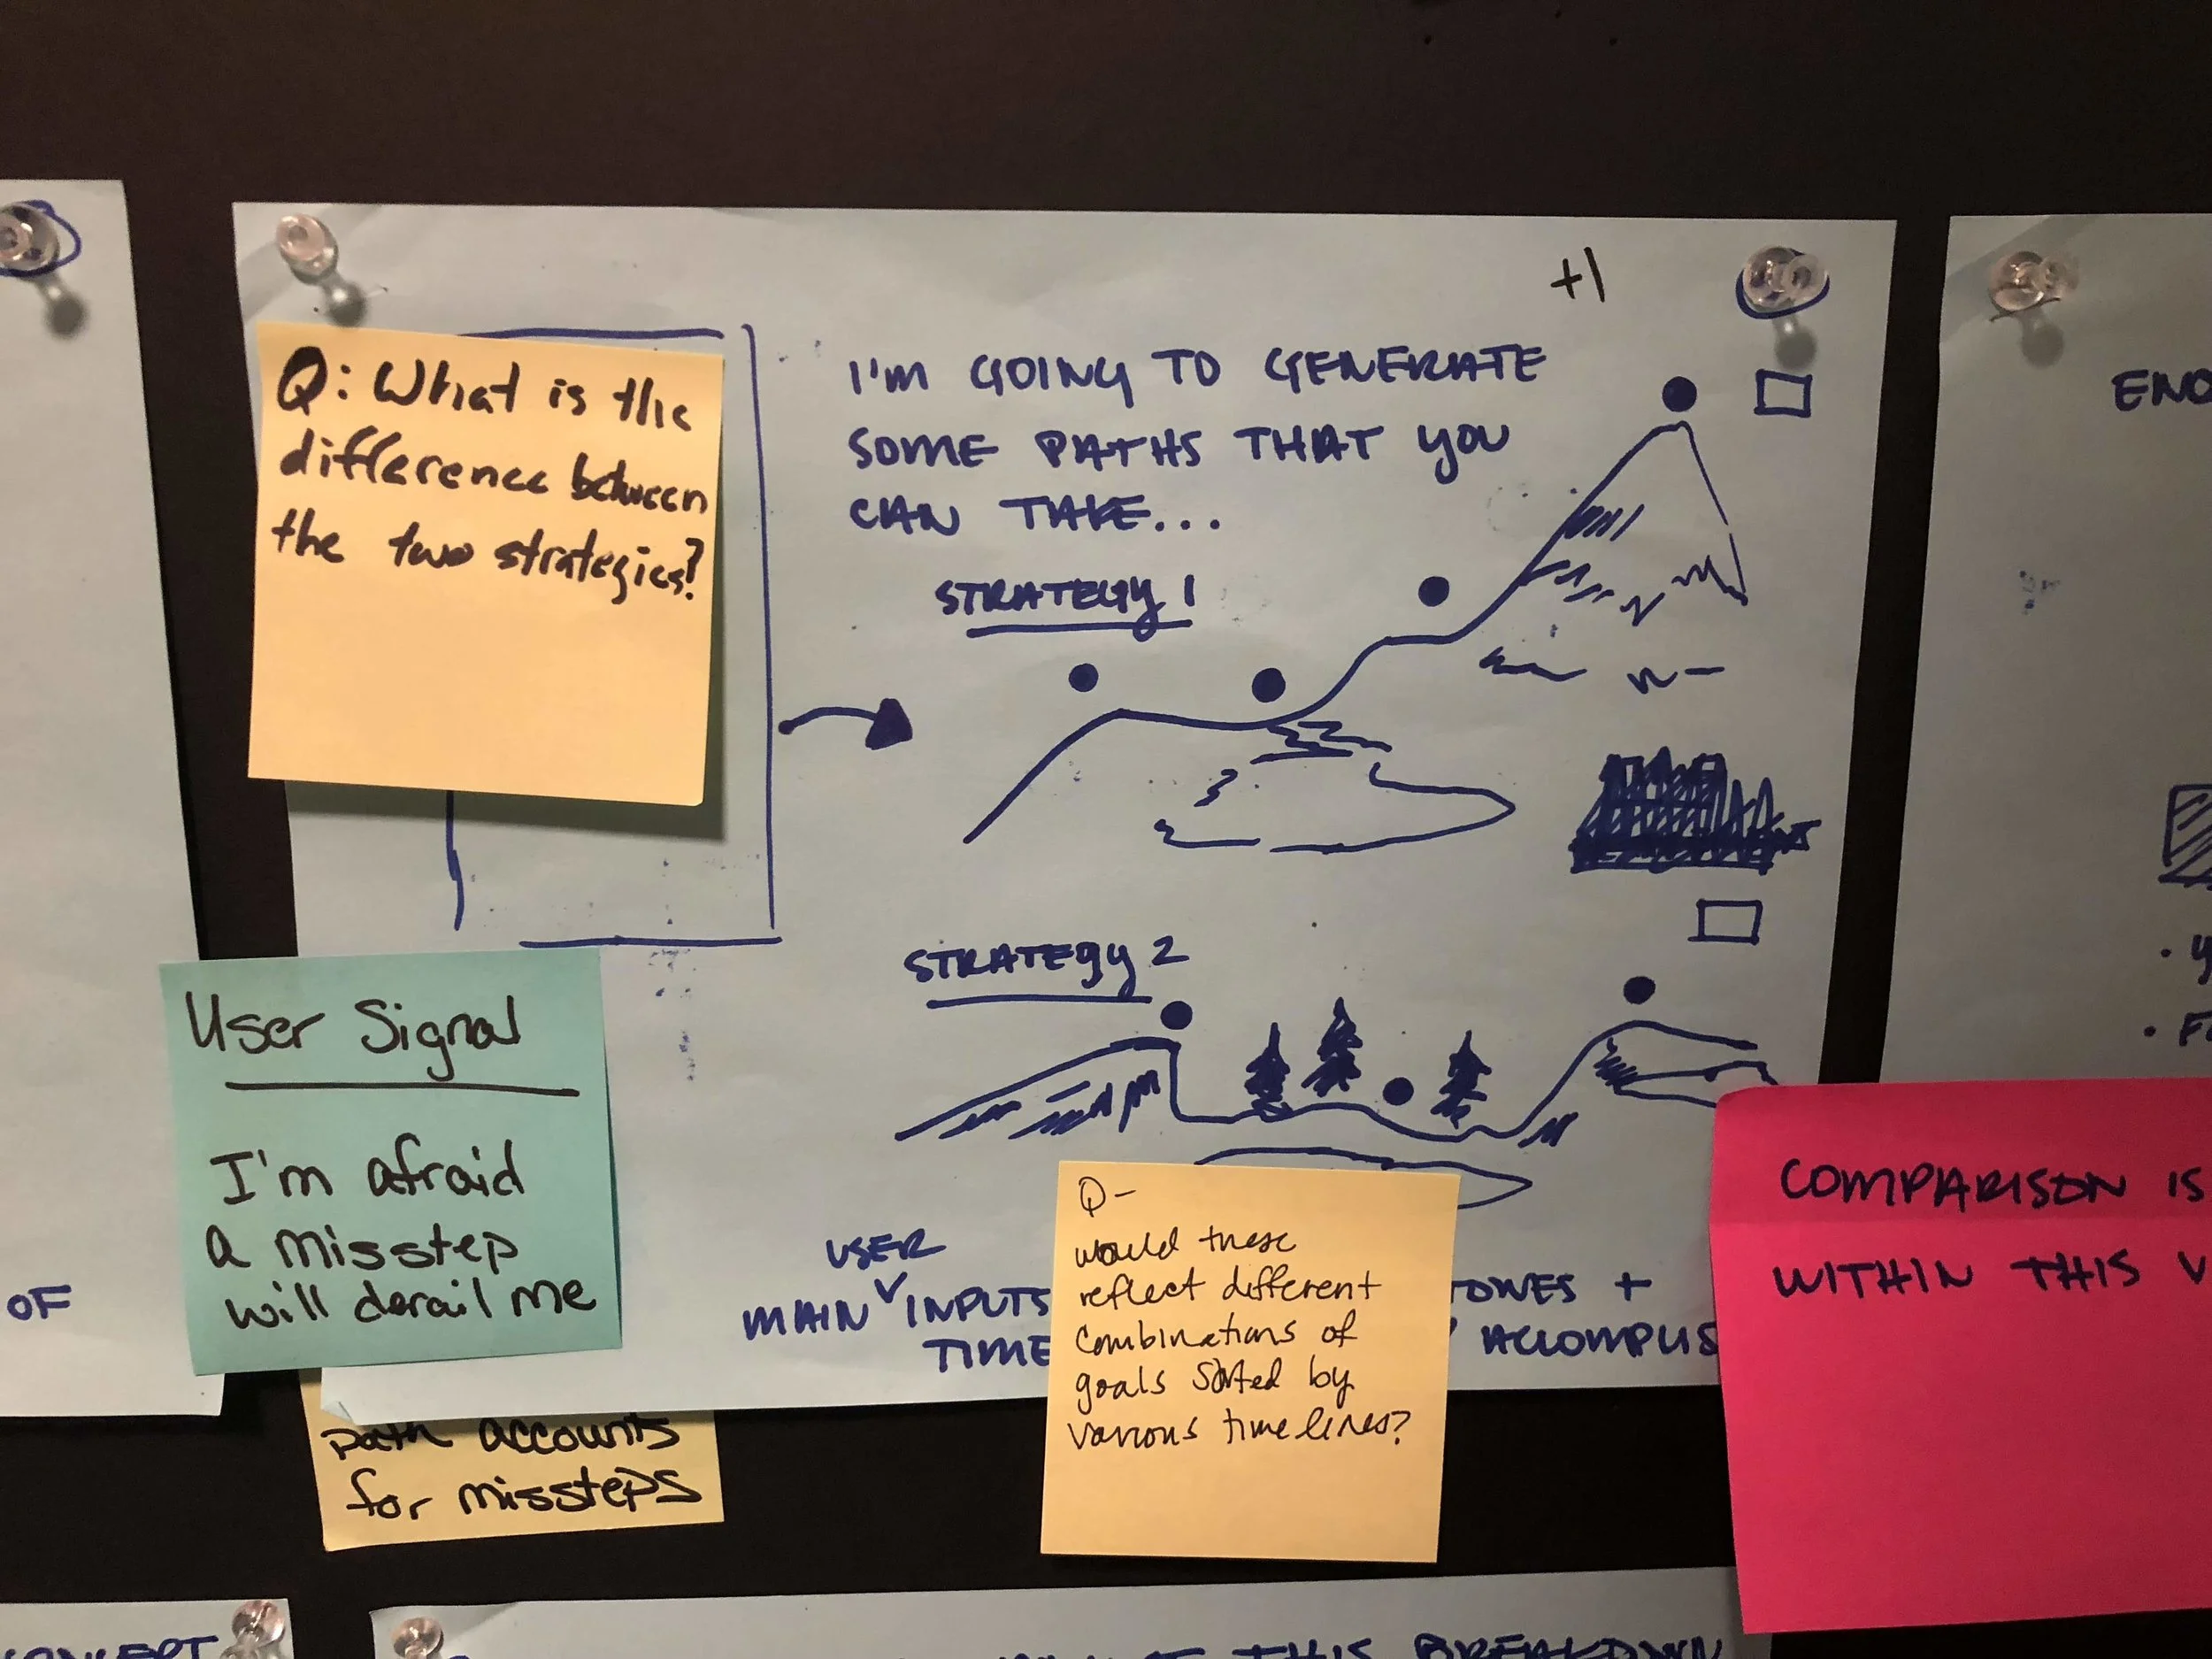 +1
Q: What is the
difference between
the two strategies?
I'M GOING TO GENERATE
SOME PATHS THAT YOU
CAN TAKE...
STRATEGY 1
STRATEGY 2
User Signal
I'm afraid
a misstep
will derail me
path accounts
for missteps
USER
MAIN INPUTS
TIME
+
Q-
would these
reflect different
combinations of
goals sorted by
various timelines?
COMPARISON IS
WITHIN THIS
OF
CONCEPT
THIS BREAKDOWN